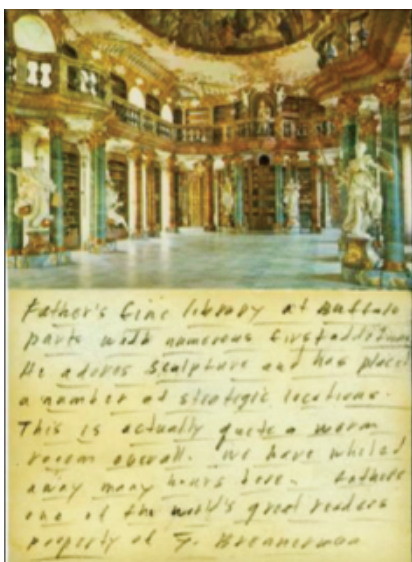 Father's fine library at Buffalo
parts with numerous first additions
He adores sculpture and has placed
a number at strategic locations.
This is actually quite a warm
room overall. We have whiled
away many hours here. Fathers
one of the world's great readers
property of F.